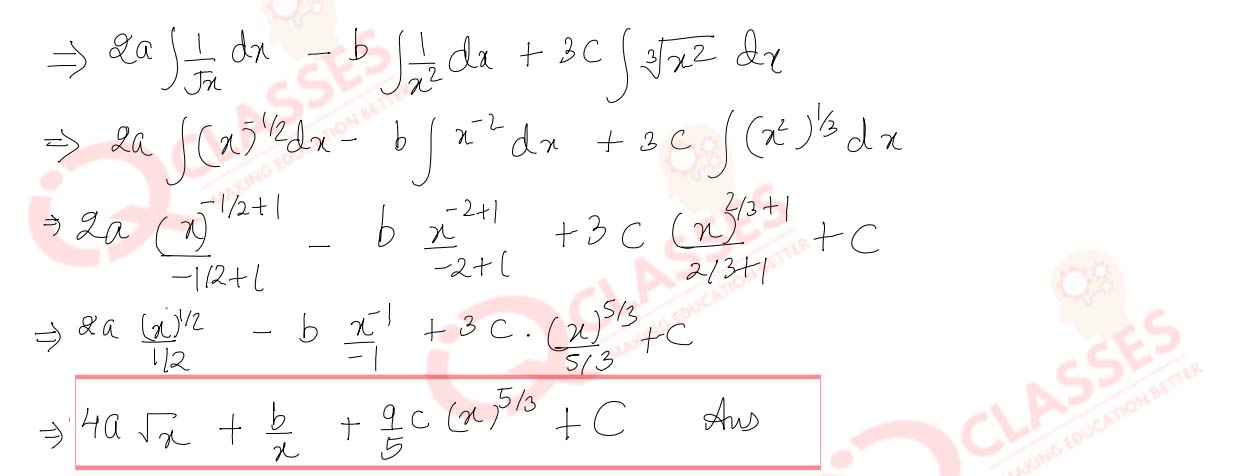 ⇒ 2a ∫ 1/√x dx − b ∫ 1/x² dx + 3c ∫ ∛x² dx
⇒ 2a ∫ (x)^-1/2 dx − b ∫ x^-2 dx + 3c ∫ (x²)^1/3 dx
⇒ 2a (x)^-1/2+1 / -1/2+1 − b x^-2+1 / -2+1 + 3c (x)^2/3+1 / 2/3+1 + C
⇒ 2a (x)^1/2 / 1/2 − b x^-1 / -1 + 3c · (x)^5/3 / 5/3 + C
⇒ 4a √x + b/x + 9/5 c (x)^5/3 + C Ans
CLASSES
MAKING EDUCATION BETTER
CLASSES
MAKING EDUCATION BETTER
CLASSES
MAKING EDUCATION BETTER